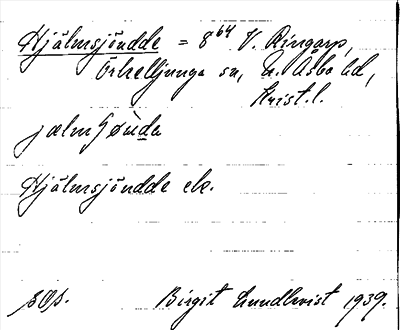 Hjälmsjöudde = 8⁶⁴ V. Ringarp,
Örkelljunga sn, N. Åsbo hd,
Krist. l.
Hjälmsjöudde ek.
Birgit Lundkvist 1939.